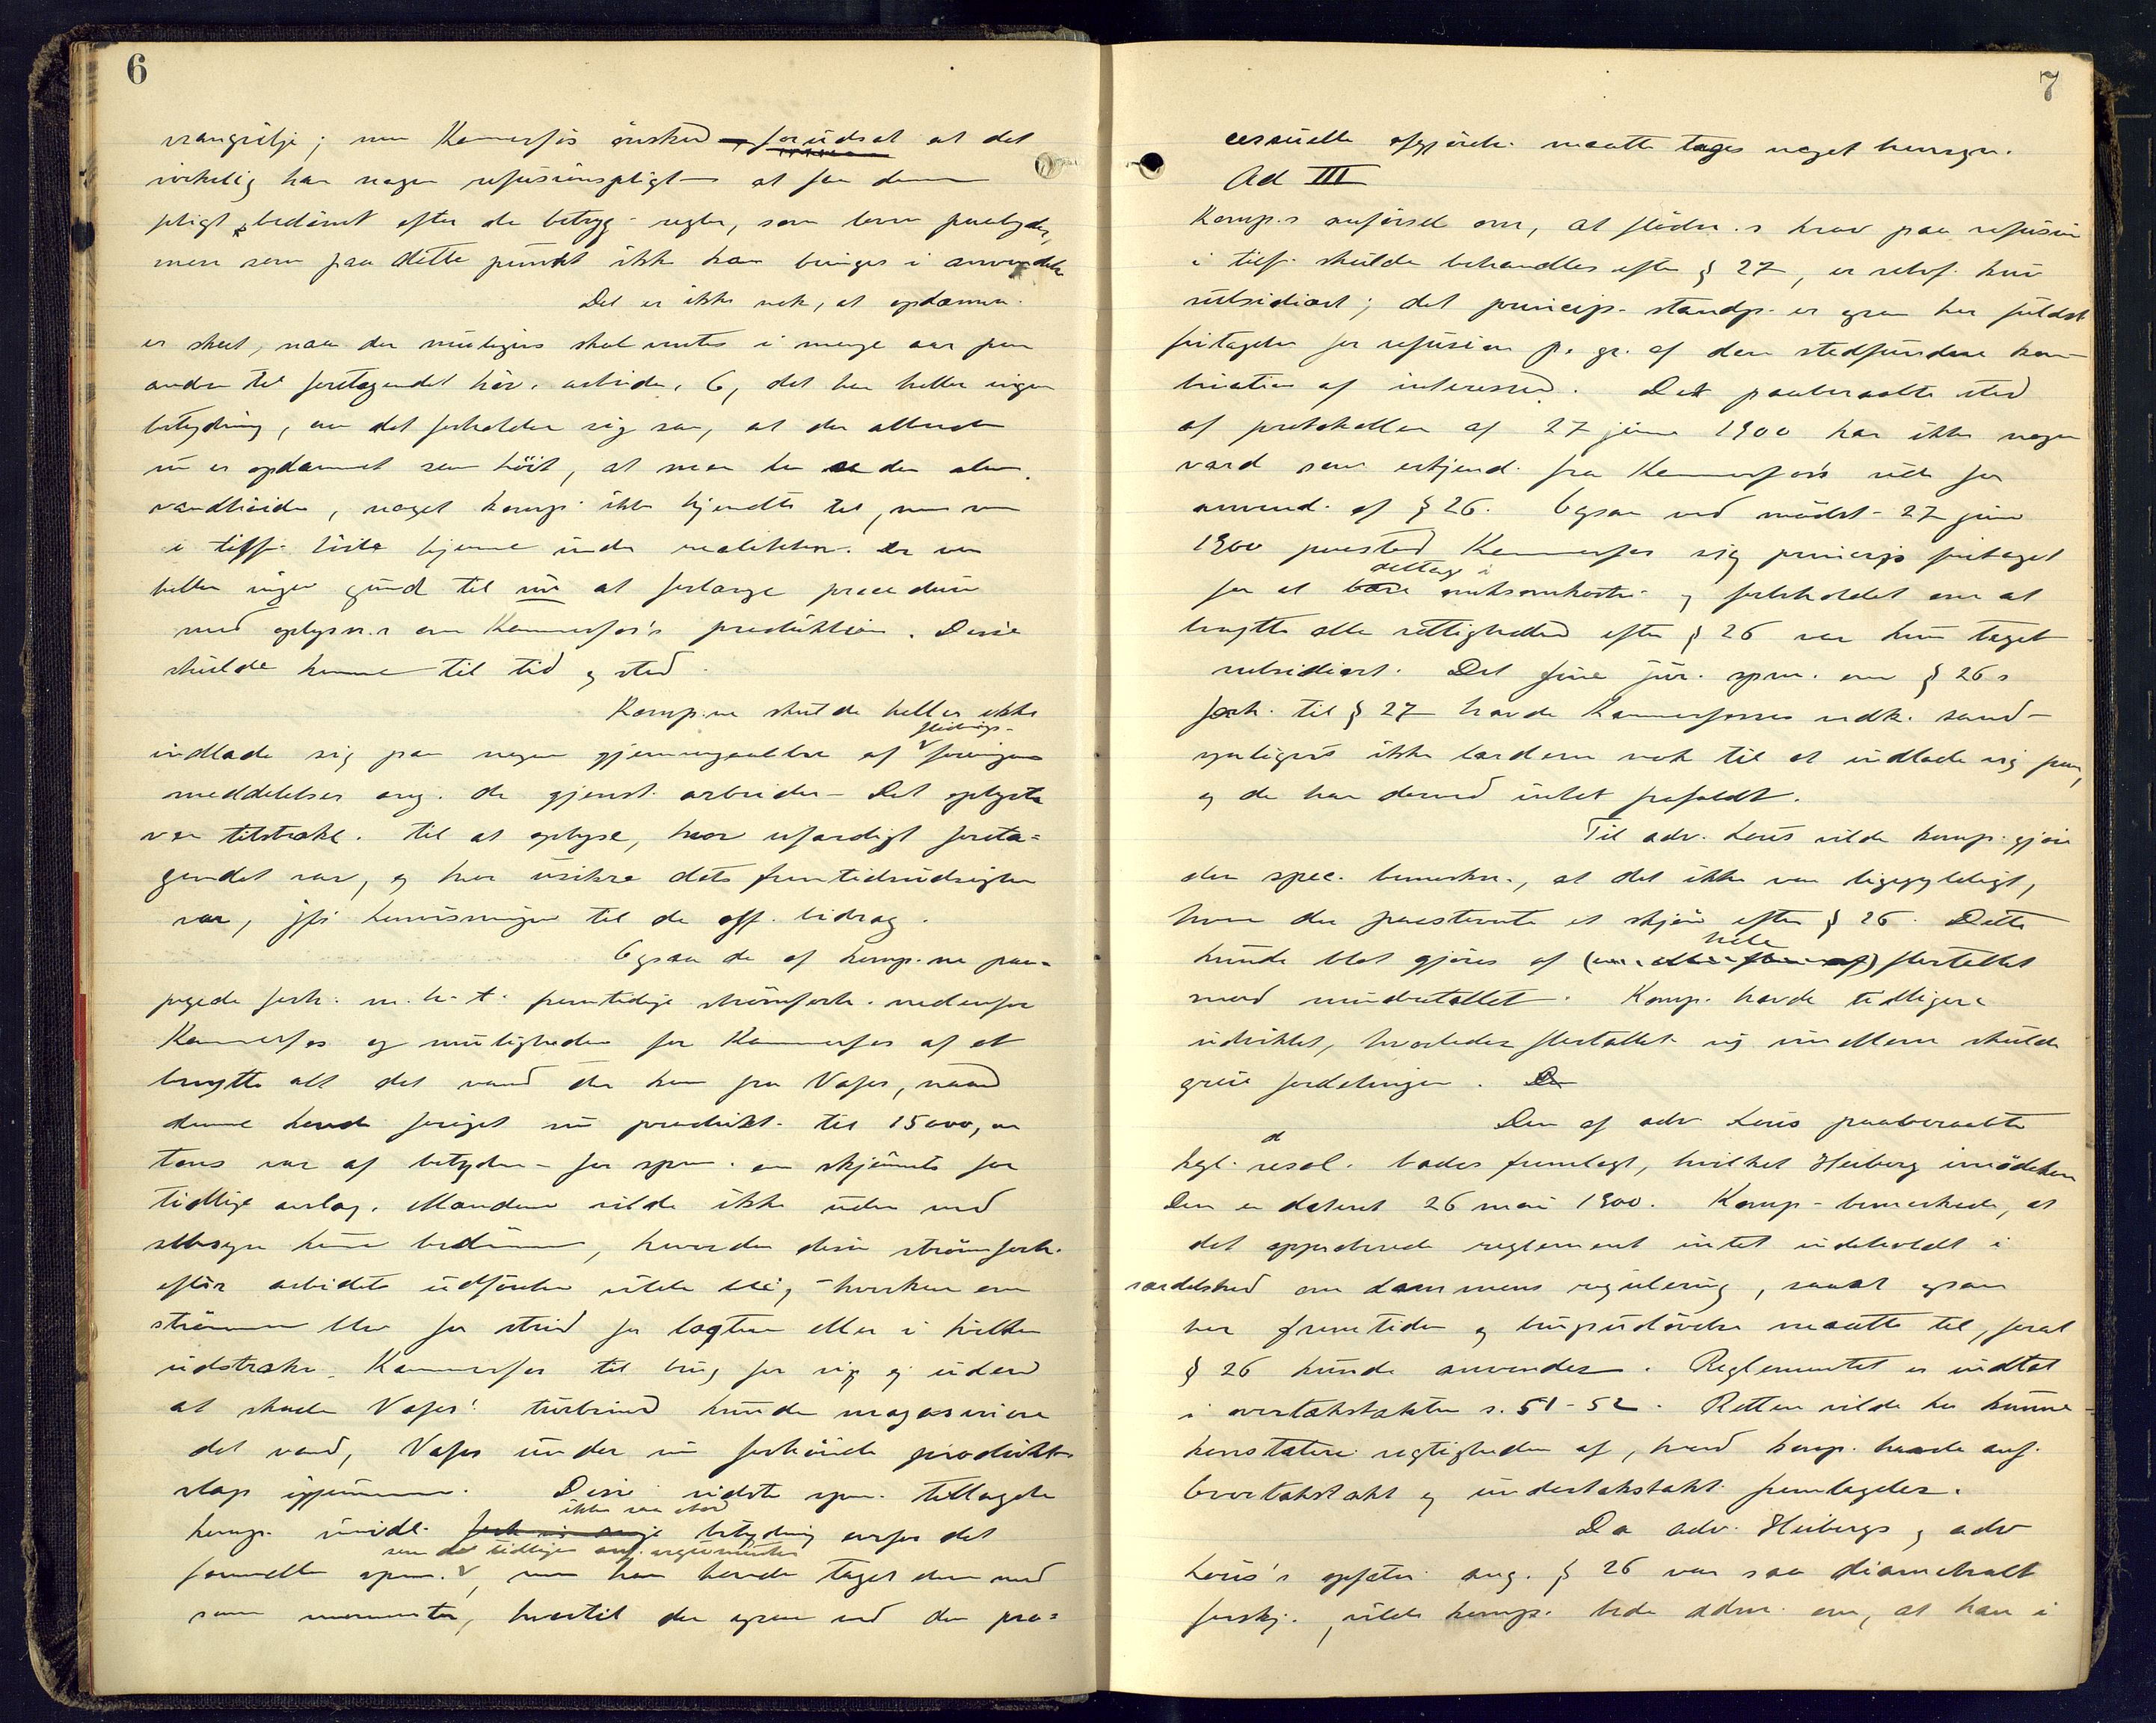 6
vrangvilje; men Kammerfos ønsked forudsat at det
virkelig har nogen refusionspligt at faa denne
pligt bedømt efter de betryg. regler, som loven paabyder,
men som paa dette punkt ikke kan bringes i anvendelse
Det er ikke nok, at opdæmn.
er skeet, naar der muligens skal ventes i mange aar paa
andre til foretagendet hør. arbeider. Og det har heller ingen
betydning, om det forholder sig saa, at der allerede
nu er opdæmmet saa høit, at man har se den alm.
vandhøide, noget komp. ikke kjendte til, men som
i tilf. hørte hjemme under realiteten. Der var
heller ingen grund til nu at forlange procedure
med oplysn.r om Kammerfos's produktion. Disse
skulde komme til tid og sted.
Komp.ne skulde heller ikke
indlade sig paa nogen gjennemgaaelse af fløtnings-
foreningens
meddelelser ang. de gjenst. arbeider. Det oplyste
var tilstrækk. til at oplyse, hvor ufærdigt foreta=
gendet var, og hvor usikre dets fremtidsudsigter
var, jfr henvisningen til de off. bidrag.
Ogsaa de af komp.ne paa=
pegede forh. m. h. t. fremtidige strømforh. nedenfor
Kammerfos og muligheden for Kammerfos af at
benytte alt det vand der kom fra Vafos, naar
denne havde forøget sin produkt. til 15000,
tons var af betydn. for spm. om skjønnets for
tidlige anlæg. Mændene vilde ikke uden ved
selvsyn kunne bedømme, hvordan disse strømforh.
efter arbeidets udførelse vilde bli, hverken om
strømmen blev for strid for lægteren eller i hvilken
udstrækn. Kammerfos til brug for sig og uden
at skade Vafos' turbiner kunde magasinere
det vand, Vafos under sin forhøiede produktion
slap igjennem. Disse sidste spm. tillagde
ikke saa stor
komp. imidl. betydning overfor det
som de tidligere anf. argumenter
formelle spm., men han havde taget dem med
som momenter, hvortil der ogsaa ved den pro=
7
cessuelle afgjørelse maatte tages noget hensyn.
Ad III
Komp.s anførsel om, at flødn.s krav paa refusion
i tilf. skulde behandles efter § 27, er selvf. kun
subsidiært; det princip. standp. er ogsaa her fuldst.
fritagelse for refusion p. gr. af den stedfundne kom-
bination af interesser. Det paaberaabte sted
af protokollen af 27 juni 1900 har ikke nogen
værd som erkjend. fra Kammerfos's side for
anvend. af § 26. Ogsaa ved mødet 27 juni
1900 paastod Kammerfos sig princip. fritaget
deltage i
for at bære omkostninger og forbeholdet om at
benytte alle rettigheder efter § 26 var kun taget
subsidiært. Det fine jur. spm. om § 26s
forh. til § 27 havde Kammerfosses vedk. sand-
synligvis ikke lærdom nok til at indlade sig paa,
og de har derved intet frafaldt.
Til adv. Lous vilde komp. gjøre
den spec. bemærkn., at det ikke var ligegyldigt,
hvem der paastevnte et skjøn efter § 26. Dette
hele
kunde blot gjøres af flertallet
med mindretallet. Komp. havde tidligere
udviklet, hvorledes flertallet sig imellem skulde
greie fordelingen.
Den af adv Lous paaberaabte
kgl. resol. bades fremlagt, hvilket Heiberg imødekom
Den er dateret 26 mai 1900. Komp. bemærkede, at
det approberede reglement intet indeholdt i
særdeleshed om dammens regulering, saaat ogsaa
her fremtiden og brugsudøvelse maatte til, forat
§ 26 kunde anvendes. Reglementet er indtat
i overtakstakten s. 51-52. Retten vilde her kunne
konstatere rigtigheden af, hvad komp. havde anf.
Overtakstakt og undertakstakt fremlagdes.
Da adv. Heibergs og adv
Lous's opfatn. ang. § 26 var saa diametralt
forskj., vilde komp. bede adm. om, at han i